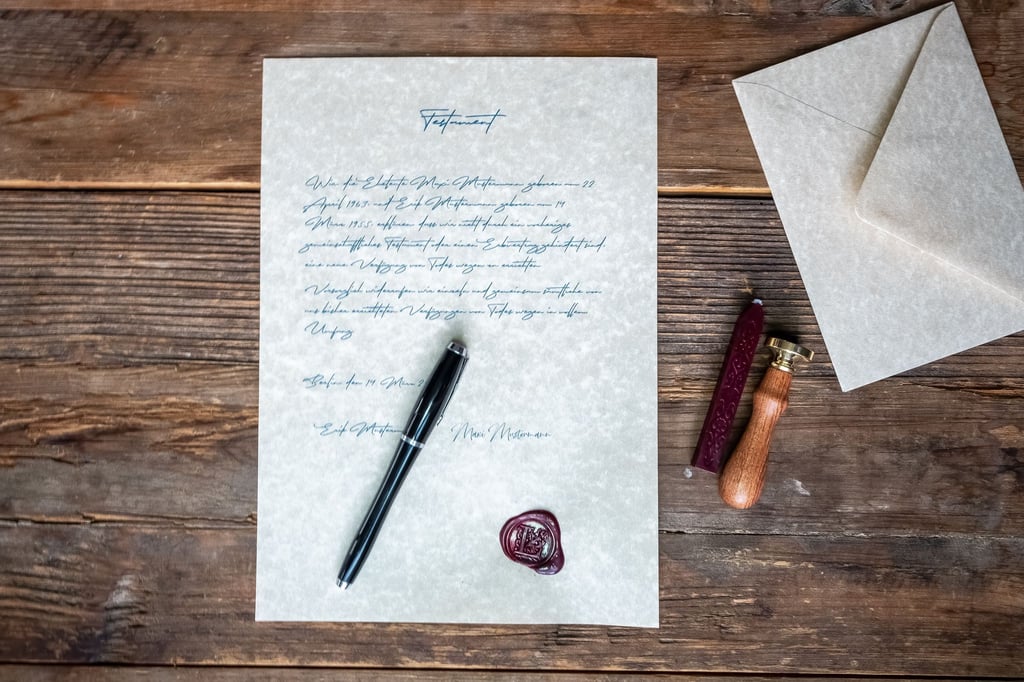 Testament
Wir die Eheleute Maxi Mustermann geboren am 22
April 1963 und Erik Mustermann geboren am 14
März 1955 erklären dass wir nicht durch ein vorheriges
gemeinschaftliches Testament oder einen Erbvertrag gehindert sind,
eine neue Verfügung von Todes wegen zu errichten
Vorsorglich widerrufen wir einzeln und gemeinsam sämtliche von
uns bisher errichteten Verfügungen von Todes wegen in vollem
Umfang
Berlin den 14 März 2
Erik Musterm
Maxi Mustermann